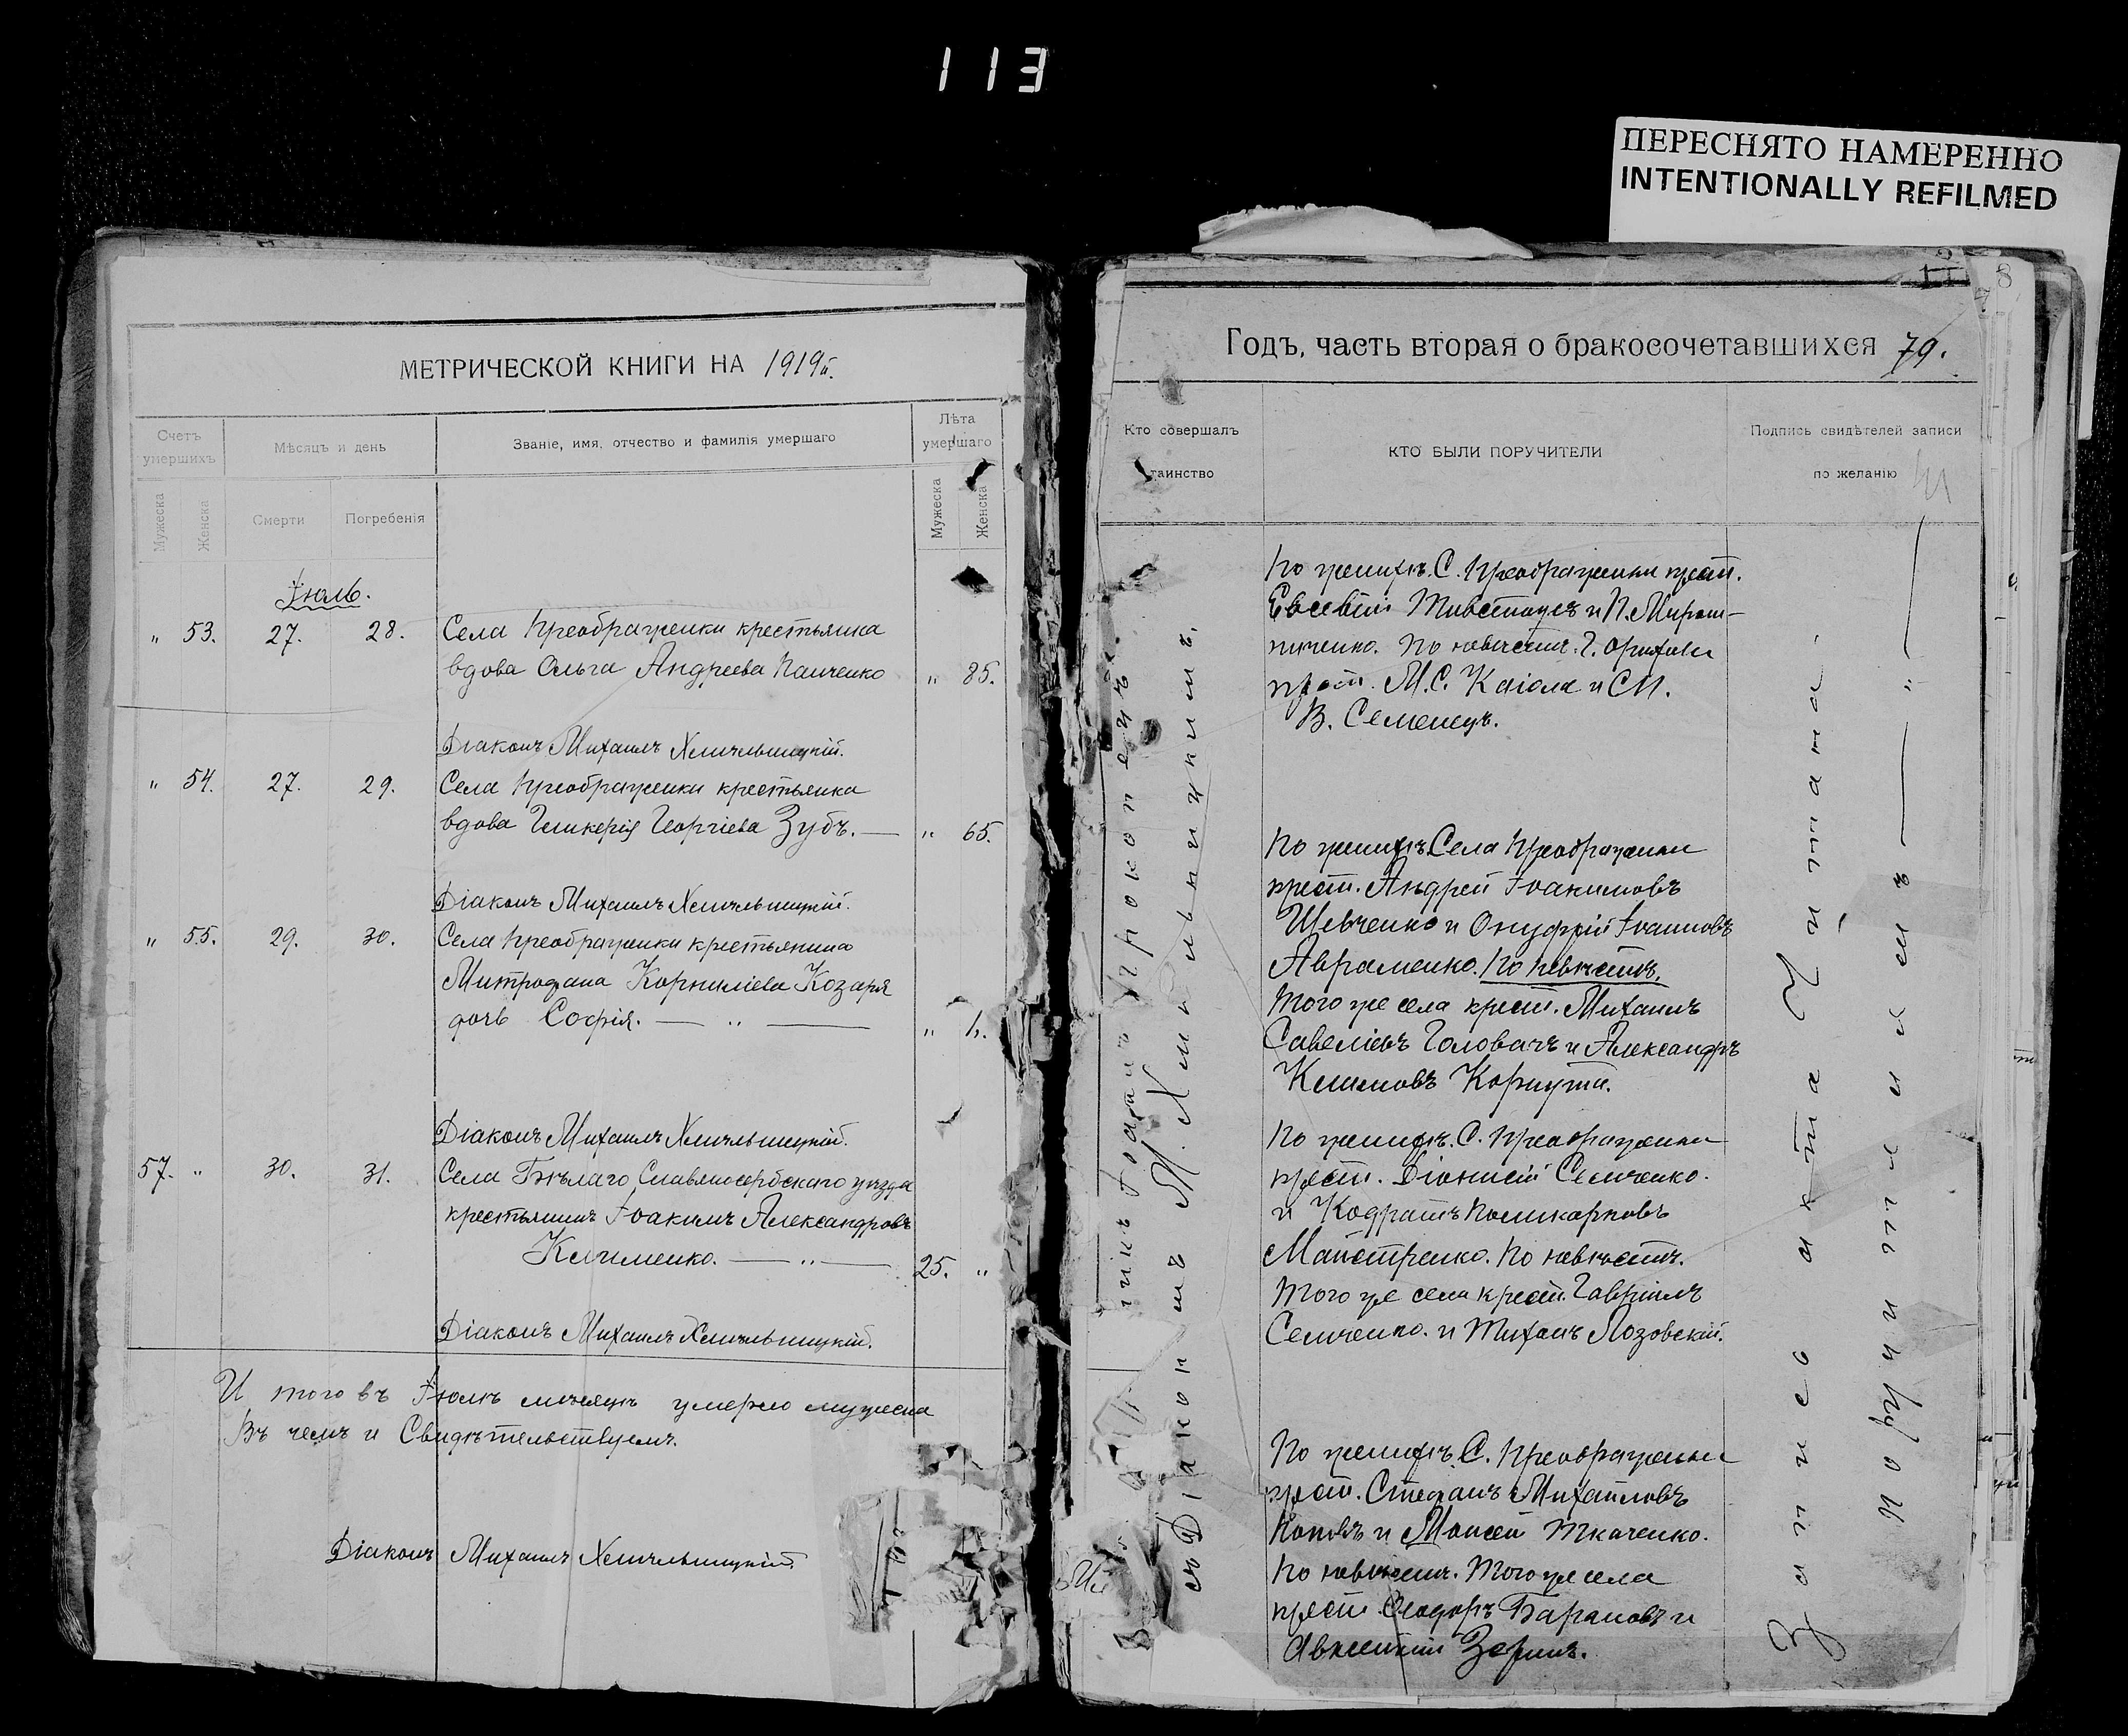 113
ПЕРЕСНЯТО НАМЕРЕННО
INTENTIONALLY REFILMED
МЕТРИЧЕСКОЙ КНИГИ НА 1919й.
Счетъ умершихъ
Мѣсяцъ и день
Званіе, имя, отчество и фамилія умершаго
Лѣта умершаго
Мужеска Женска
Смерти Погребенія
Мужеска Женска
Іюль.
" 53. 27. 28. Села Преображенки крестьянка
вдова Ольга Андреева Панченко " 85.
Діаконъ Михаилъ Хмѣльницкій.
" 54. 27. 29. Села Преображенки крестьянка
вдова Гликерія Георгіева Зубъ. — " 65.
Діаконъ Михаилъ Хмѣльницкій.
" 55. 29. 30. Села Преображенки крестьянина
Митрофана Корниліева Козаря
дочь Софія. — " —
Діаконъ Михаилъ Хмѣльницкій.
57. " 30. 31. Села Бѣлаго Славяносербскаго уѣзда
крестьянинъ Іоакимъ Александровъ
Клименко. — " — 25. "
Діаконъ Михаилъ Хмѣльницкій.
И того въ Іюлѣ мѣсяцѣ умерло мужеска
Въ чемъ и Свидѣтельствуемъ.
Діаконъ Михаилъ Хмѣльницкій
Годъ, часть вторая о бракосочетавшихся 79.
Кто совершалъ таинство
КТО БЫЛИ ПОРУЧИТЕЛИ
Подпись свидѣтелей записи по желанію
По женихѣ. С. Преображенки крест.
Евсевій и П. Мирош-
ниченко. По невѣстѣ.
крест. М. С. и
В. Семенецъ.
По женихѣ Села Преображенки
крест. Андрей Іоакимовъ
Шевченко и Онуфрій Іоанновъ
Авраменко. По невѣстѣ.
того же села крест. Михаилъ
Савеліевъ Головачъ и Александръ
Климовъ Корнута.
По женихѣ. С. Преображенки
крест. Діонисій Семченко.
и Кодратъ Поликарповъ
Майстренко. По невѣстѣ.
того же села крест. Гавріилъ
Семченко. и Тихонъ Лозовскій.
По женихѣ С. Преображенки
крест. Стефанъ Михайловъ
Поповъ и Моисей Ткаченко.
По невѣстѣ. Того же села
крест. Ѳеодоръ Барановъ и
Діакон М. Хмѣльницкимъ.
Запись акта читана
Поручителямъ — " —